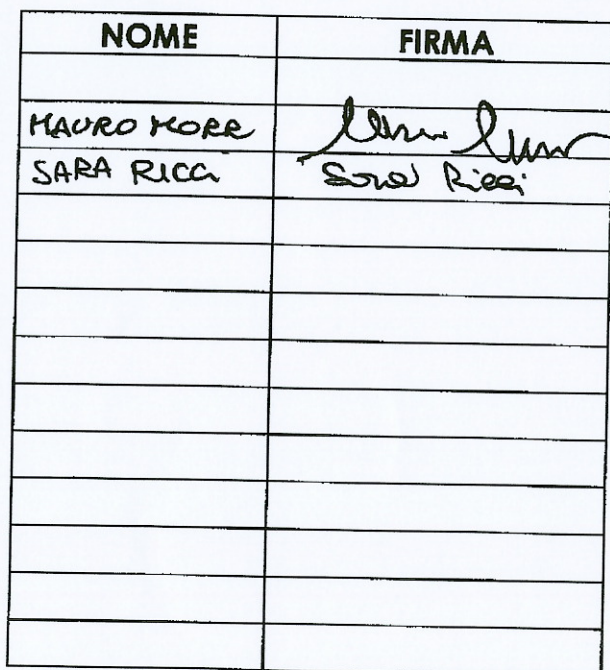 NOME FIRMA
MAURO MORR
SARA RICCI Sara Ricci